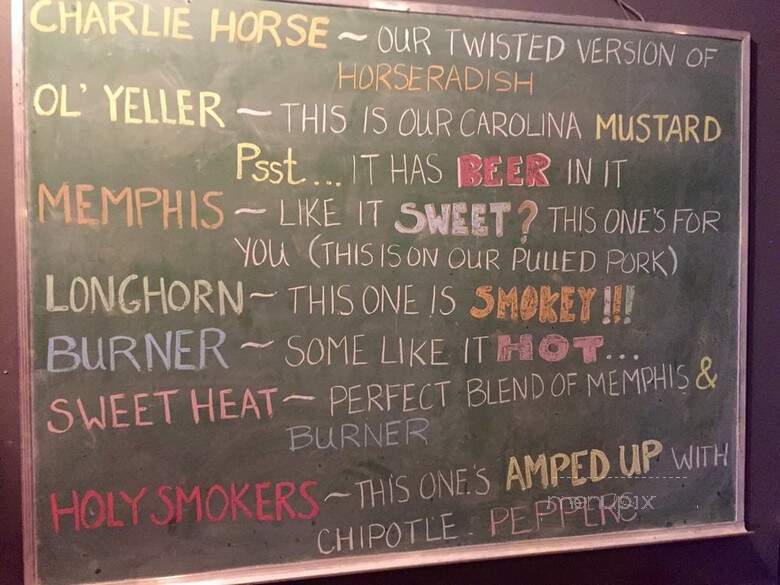 CHARLIE HORSE ~ OUR TWISTED VERSION OF
HORSERADISH
OL' YELLER ~ THIS IS OUR CAROLINA MUSTARD
Psst... IT HAS BEER IN IT
MEMPHIS ~ LIKE IT SWEET? THIS ONE'S FOR
YOU (THIS IS ON OUR PULLED PORK)
LONGHORN ~ THIS ONE IS SMOKEY!!!
BURNER ~ SOME LIKE IT HOT...
SWEET HEAT ~ PERFECT BLEND OF MEMPHIS &
BURNER
HOLY SMOKERS ~ THIS ONE'S AMPED UP WITH
menupix
CHIPOTLE PEPPERS